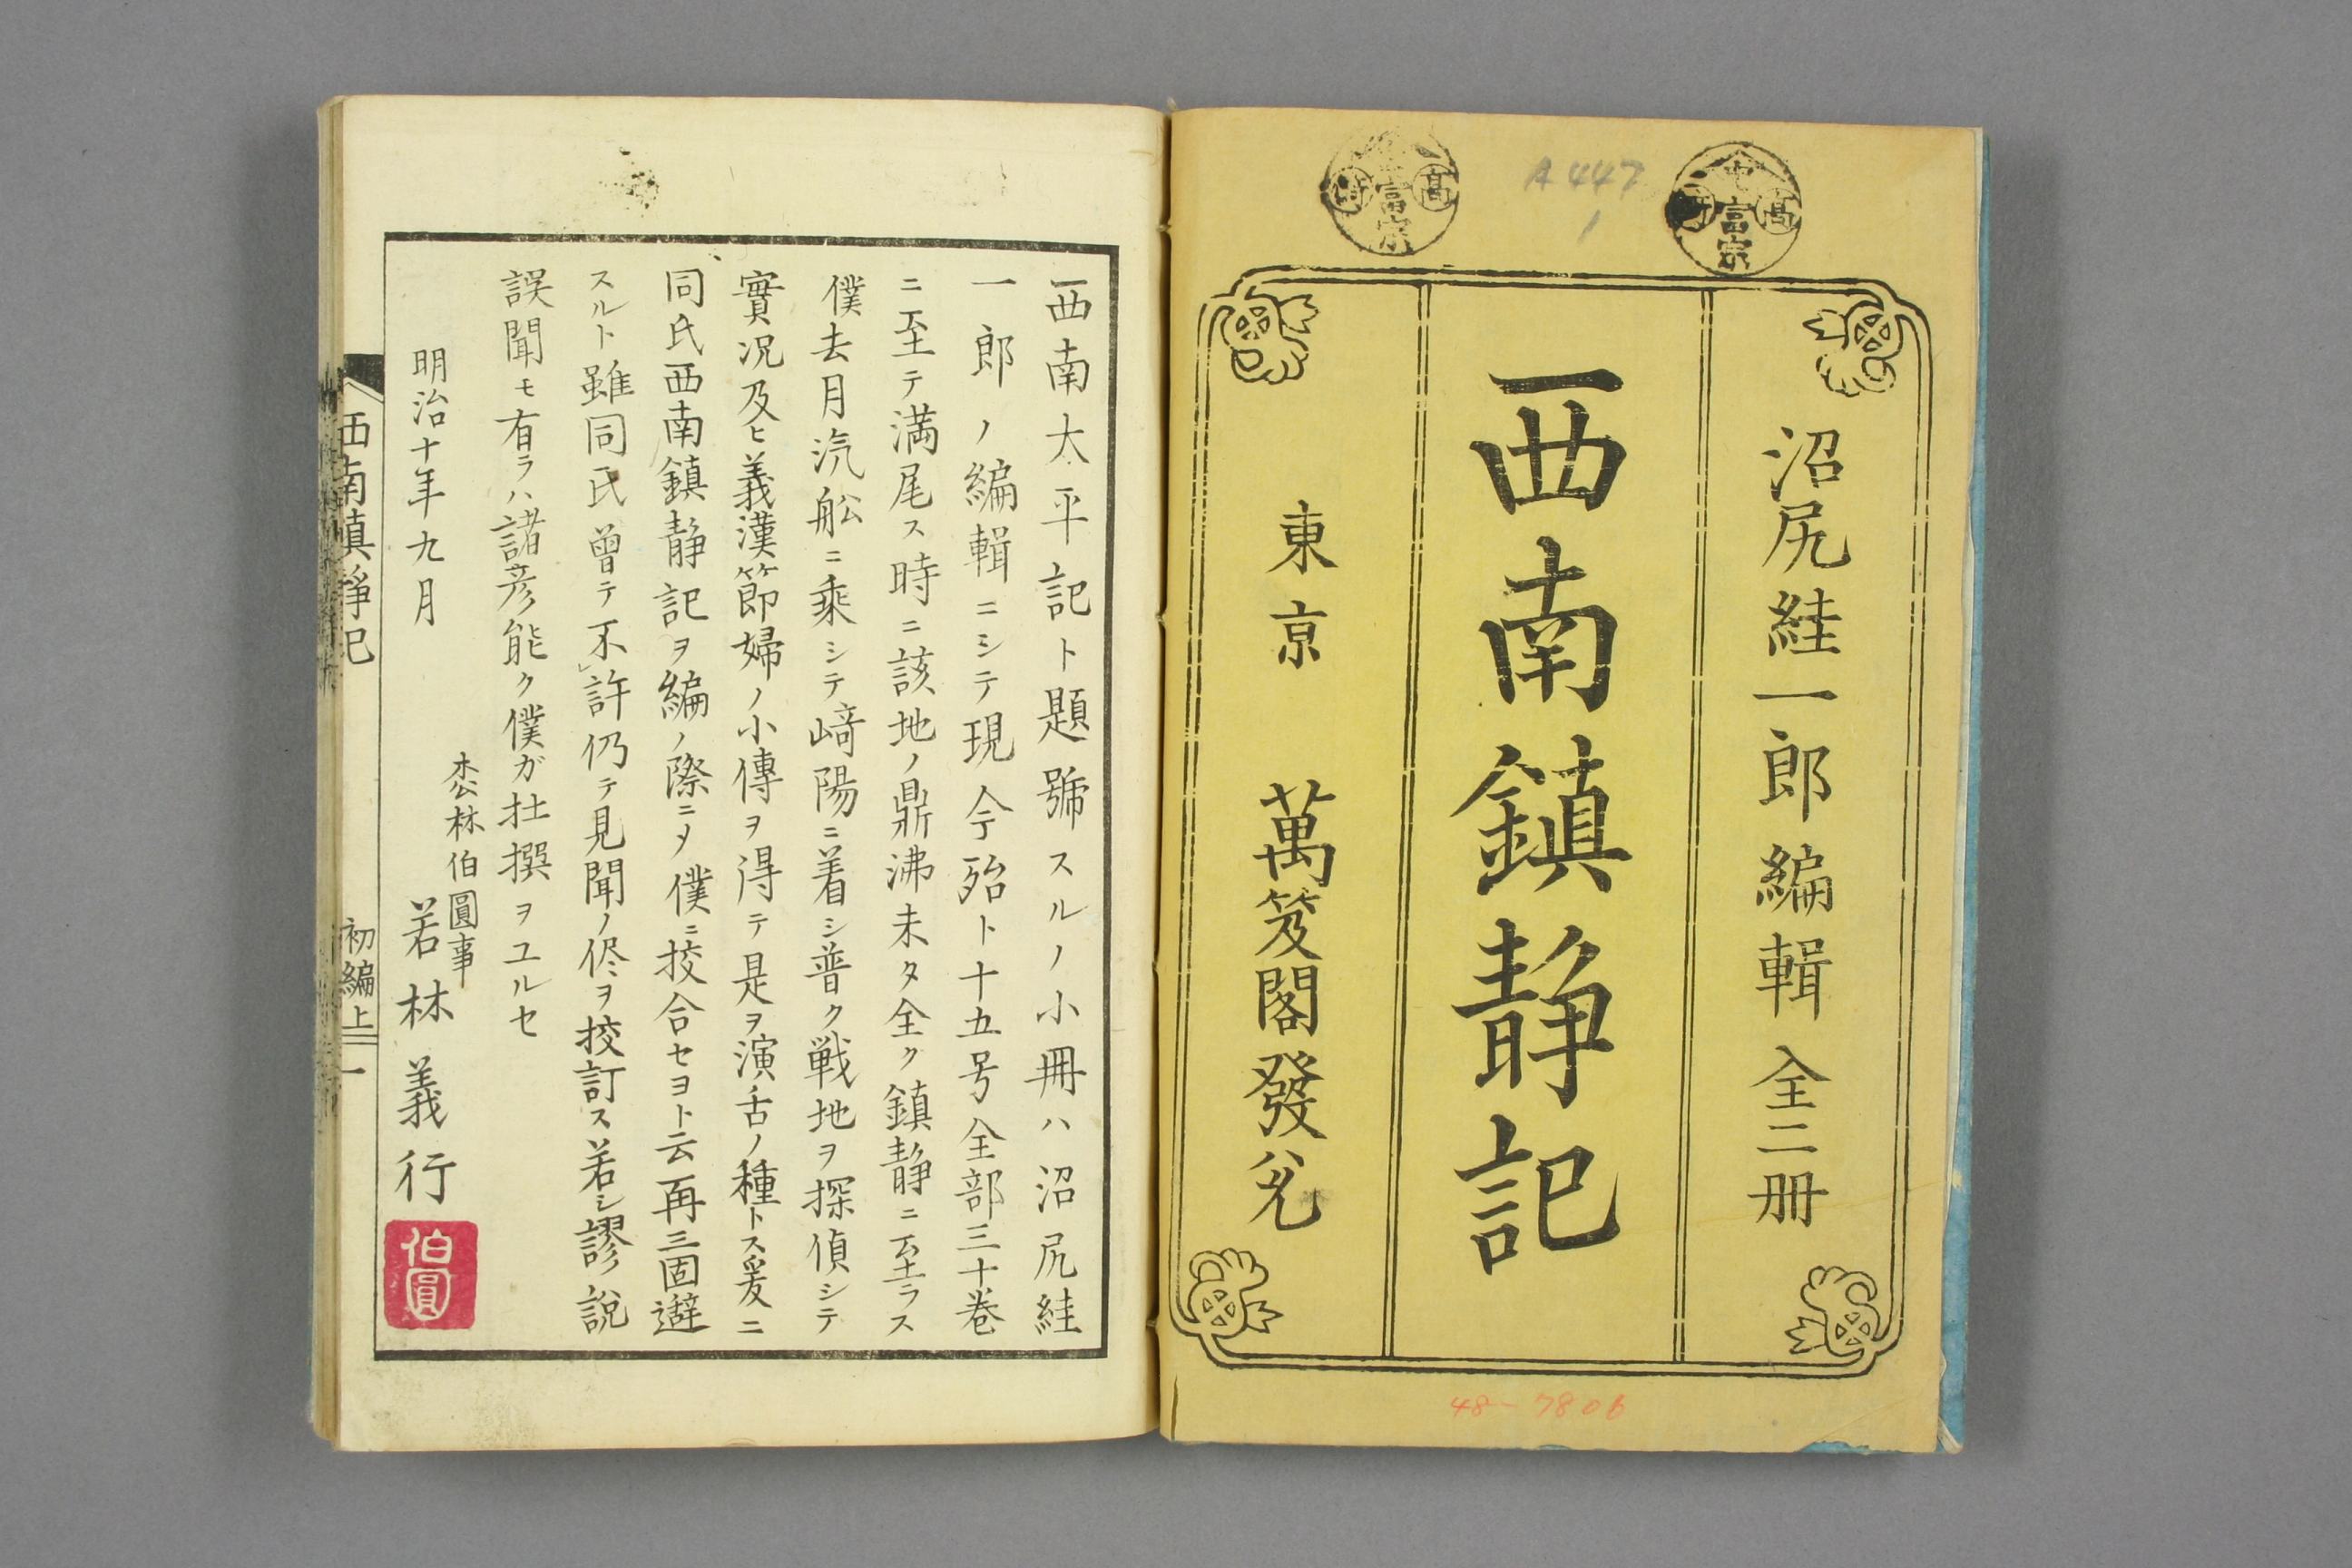 A447
1
髙
富
宗
中
髙
富
宗
沼尻絓一郎編輯 全二册
西南鎮静記
東京 萬笈閣發兌
48-7806
西南太平記ト題號スルノ小冊ハ沼尻絓
一郎ノ編輯ニシテ現今殆ト十五号全部三十巻
ニ至テ満尾ス時ニ該地ノ鼎沸未タ全ク鎮静ニ至ラス
僕去月汽舩ニ乗シテ﨑陽ニ着シ普ク戦地ヲ探偵シテ
實况及ヒ義漢節婦ノ小傳ヲ得テ是ヲ演舌ノ種トス爰ニ
同氏西南鎮静記ヲ編ノ際ニ〆僕ニ挍合セヨト云再三固避
スルト雖同氏曽テ不許仍テ見聞ノ侭ヲ挍訂ス若シ謬説
誤聞モ有ラハ諸彦能ク僕ガ杜撰ヲユルセ
明治十年九月
枩林伯圓事
若林義行
伯圓
西南鎮静記
初編上
一